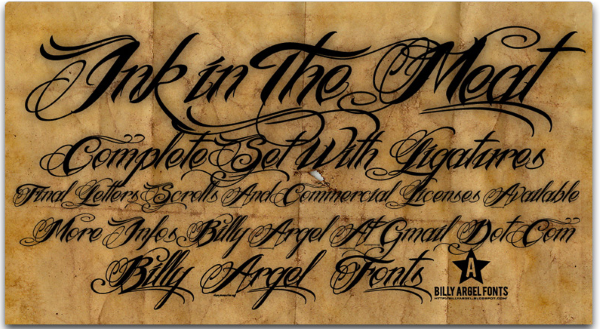 Ink in The Meat
Complete Set With Ligatures
Final Letters Scrolls And Commercial Licenses Available
More Infos Billy Argel At Gmail Dot Com
Billy Argel Fonts
A
BILLY ARGEL FONTS